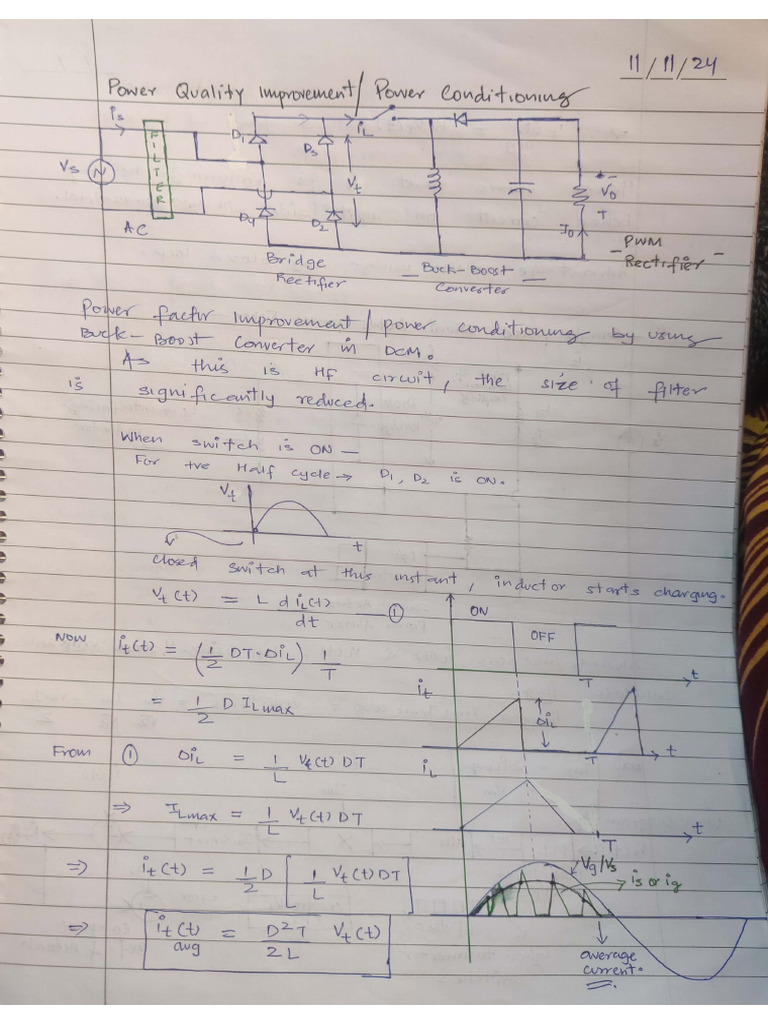 11/11/24
Power Quality Improvement/Power Conditioning
is
D1
D3
iL
Vs
N
FILTER
Vt
+ -
Vo
+
Io
D4
D2
AC
Bridge
Rectifier
— Buck-Boost —
Converter
- PWM
Rectifier -
Power factor Improvement/power conditioning by using
Buck-Boost Converter in DCM.
As this is HF circuit, the size of filter
is significantly reduced.
When switch is ON —
For +ve Half cycle → D1, D2 is ON.
Vt
t
closed switch at this instant, inductor starts charging.
Vt(t) = L diL(t)/dt ①
ON
OFF
T
t
Now it(t) = (1/2 DT·DiL) 1/T
it
DiL
T
t
= 1/2 D ILmax
From ① DiL = 1/L Vt(t) DT
iL
T
t
⇒ ILmax = 1/L Vt(t) DT
⇒ it(t) = 1/2 D [1/L Vt(t) DT]
Vg/Vs
is or ig
⇒ it(t) avg = D²T/2L Vt(t)
average
current.